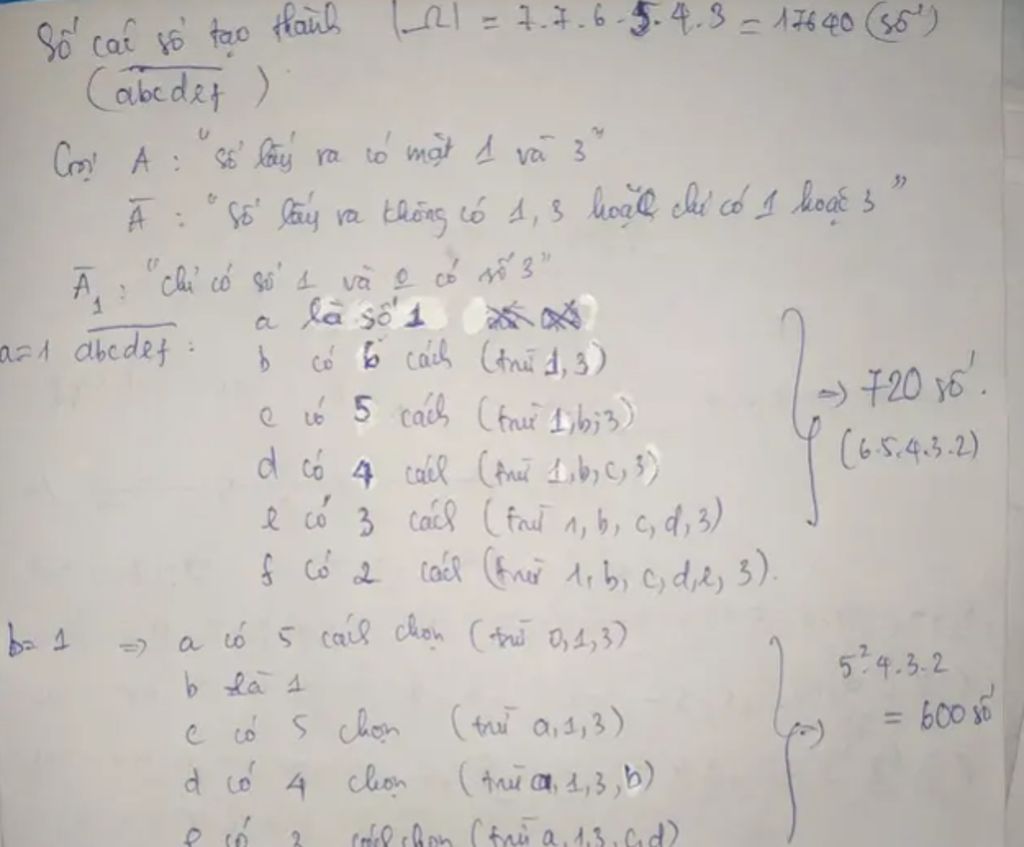 Số các số tạo thành |Ω| = 7.7.6.5.4.3 = 17640 (số)
(abcdef)
Gọi A : "Số lấy ra có mặt 1 và 3"
Ā : "Số lấy ra không có 1, 3 hoặc chỉ có 1 hoặc 3"
Ā₁ : "chỉ có số 1 và o có số 3"
a là số 1
a=1 abcdef :
b có 6 cách (trừ 1,3)
c có 5 cách (trừ 1,b,3)
d có 4 cách (trừ 1,b,c,3)
e có 3 cách (trừ 1, b, c, d, 3)
f có 2 cách (trừ 1, b, c, d, e, 3).
=> 720 số.
(6.5.4.3.2)
b= 1 => a có 5 cách chọn (trừ 0,1,3)
b là 1
c có 5 chọn (trừ a,1,3)
d có 4 chọn (trừ a, 1,3,b)
e có 3 cách chọn (trừ a,1,3,c,d)
=> 5².4.3.2
= 600 số